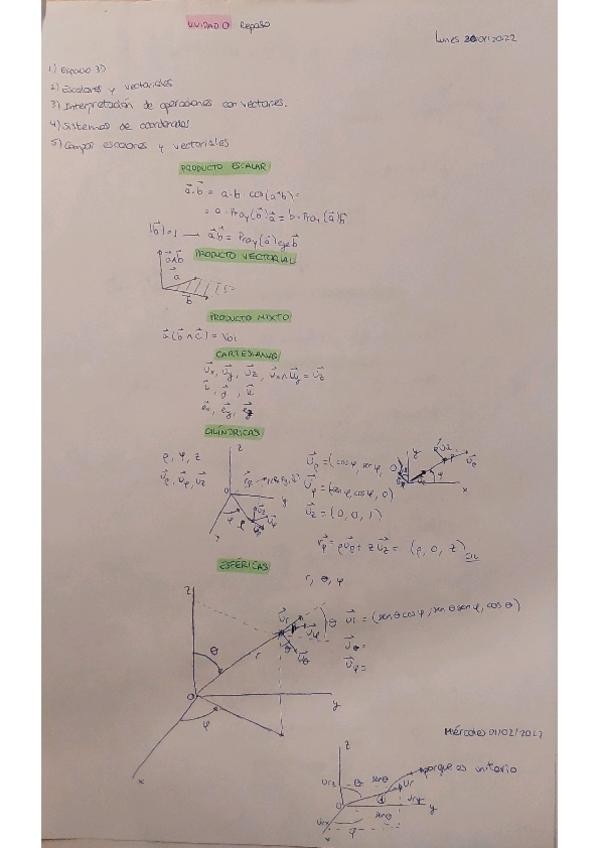 UNIDAD 0 Repaso
Lunes
1) Espacio 3D
2) Escalares y vectoriales
3) Interpretación de operaciones con vectores.
4) Sistemas de coordenadas
5) Campos escalares y vectoriales
PRODUCTO ESCALAR
a⃗·b⃗ = a·b cos(a^b) =
= a·Proy(b⃗)a⃗ = b·Proy(a⃗)b⃗
|b⃗|=1 → a⃗b⃗ = Proy(a⃗) eje b⃗
PRODUCTO VECTORIAL
a⃗∧b⃗
a⃗
b⃗
PRODUCTO MIXTO
a⃗(b⃗∧c⃗) = Vol
CARTESIANAS
u⃗x, u⃗y, u⃗z, u⃗x∧u⃗y = u⃗z
e⃗x, e⃗y, e⃗z
CILÍNDRICAS
ρ, φ, z
u⃗ρ, u⃗φ, u⃗z
u⃗ρ = (cosφ, senφ,
u⃗φ = (senφ, cosφ, 0)
u⃗z = (0, 0, 1)
r⃗p = ρu⃗ρ + zu⃗z = (ρ, 0, z)
ESFÉRICAS
r, θ, φ
u⃗r = (senθcosφ, senθsenφ, cosθ)
u⃗θ =
u⃗φ =
z
θ
r
O
y
φ
x
Miércoles 01/02/2022
z
porque es unitario
θ
senθ
ur
y
φ
x